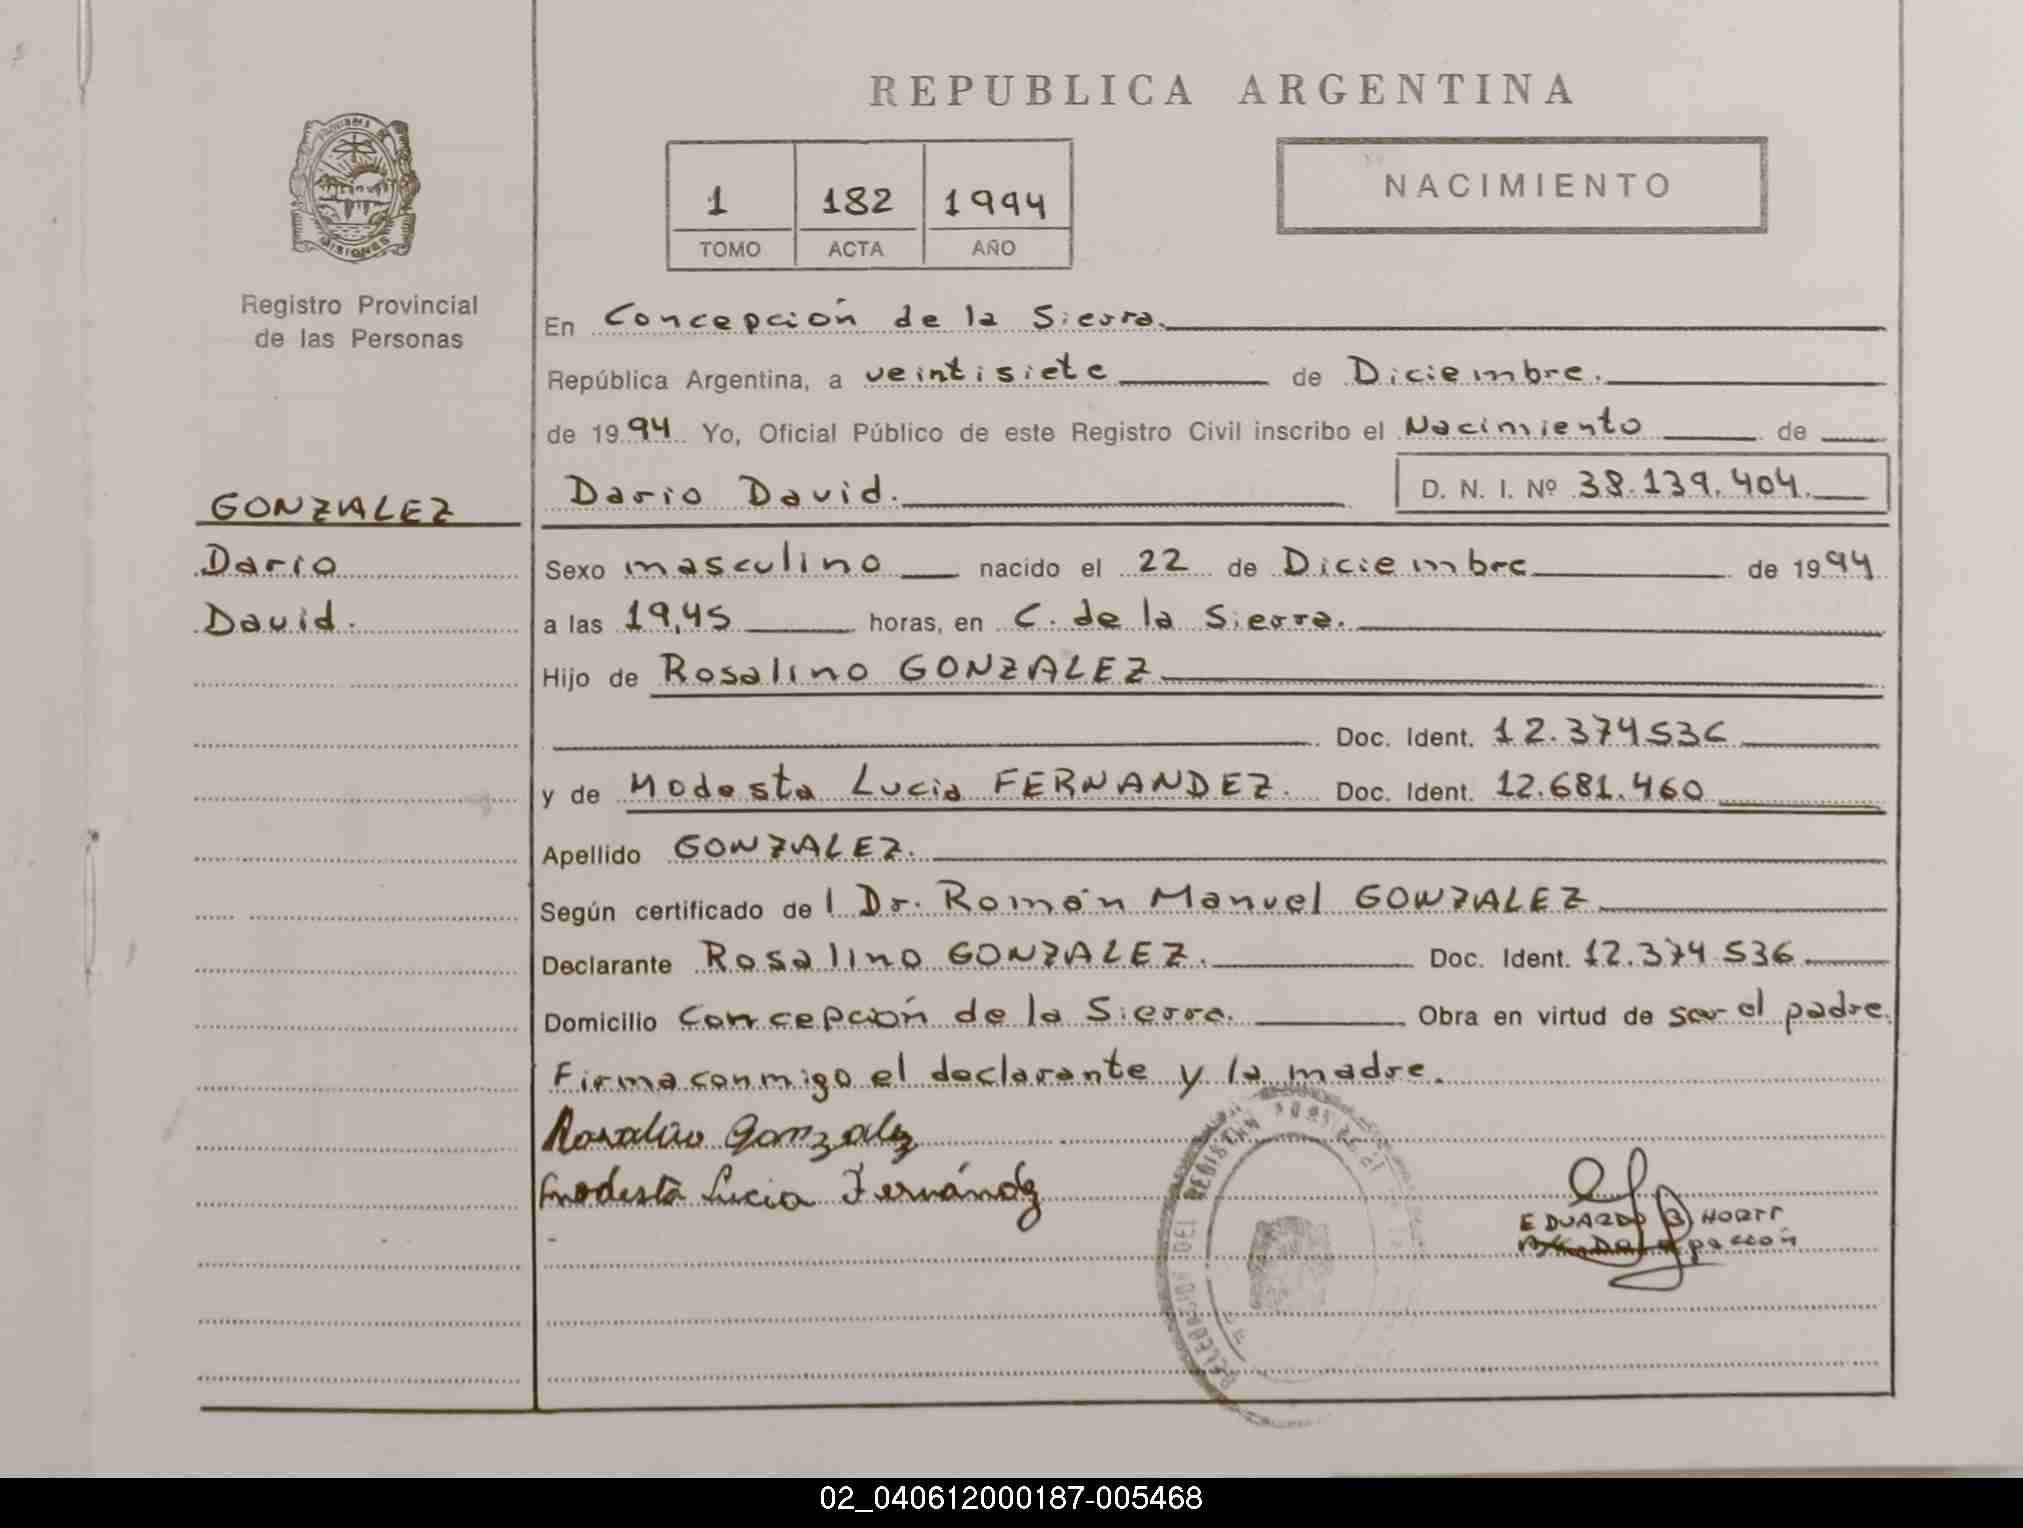 REPUBLICA ARGENTINA
PROVINCIA DE
MISIONES
Registro Provincial
de las Personas
1 182 1994
TOMO ACTA AÑO
NACIMIENTO
En Concepción de la Sierra.
República Argentina, a veintisiete de Diciembre.
de 1994 Yo, Oficial Público de este Registro Civil inscribo el Nacimiento de
Dario David. D. N. I. Nº 38.139.404.
GONZALEZ
Dario
David.
Sexo masculino nacido el 22 de Diciembre de 1994
a las 19,45 horas, en C. de la Sierra.
Hijo de Rosalino GONZALEZ
Doc. Ident. 12.374536
y de Modesta Lucia FERNANDEZ. Doc. Ident. 12.681.460
Apellido GONZALEZ.
Según certificado de l Dr. Román Manuel GONZALEZ
Declarante Rosalino GONZALEZ. Doc. Ident. 12.374.536
Domicilio Concepción de la Sierra. Obra en virtud de ser el padre.
Firma conmigo el declarante y la madre.
Rosalino Gonzalez
Modesta Lucia Fernández
DELEGACION DEL REGISTRO PROVINCIAL DE LAS
EDUARDO B
02_040612000187-005468